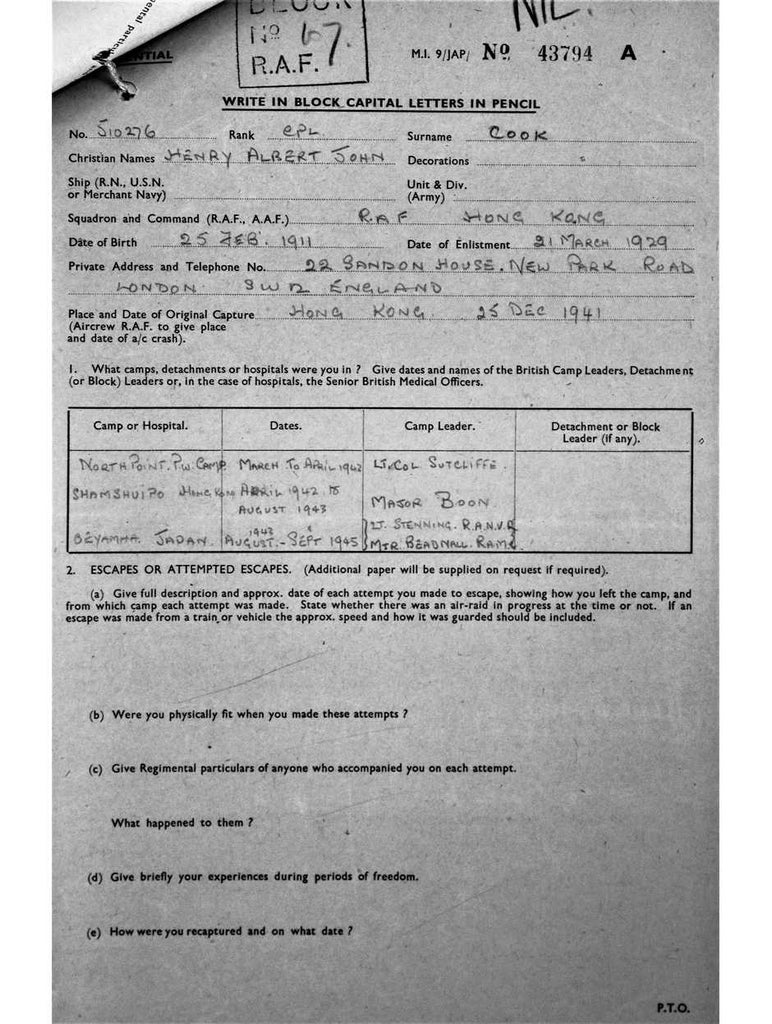 ental particu
NTIAL
BLOCK
Nº 67.
R.A.F.
NIL.
M.I. 9/JAP/ Nº 43794 A
WRITE IN BLOCK CAPITAL LETTERS IN PENCIL
No. 510276 Rank CPL Surname COOK
Christian Names HENRY ALBERT JOHN Decorations
Ship (R.N., U.S.N. or Merchant Navy) Unit & Div. (Army)
Squadron and Command (R.A.F., A.A.F.) RAF HONG KONG
Date of Birth 25 FEB. 1911 Date of Enlistment 21 MARCH 1929
Private Address and Telephone No. 22 SANDON HOUSE. NEW PARK ROAD
LONDON SW2 ENGLAND
Place and Date of Original Capture HONG KONG. 25 DEC 1941
(Aircrew R.A.F. to give place
and date of a/c crash).
1. What camps, detachments or hospitals were you in ? Give dates and names of the British Camp Leaders, Detachment
(or Block) Leaders or, in the case of hospitals, the Senior British Medical Officers.
Camp or Hospital. Dates. Camp Leader. Detachment or Block Leader (if any).
NORTH POINT. P.W. CAMP. MARCH TO APRIL 1942 LT. COL SUTCLIFFE.
SHAMSHUIPO HONG KONG APRIL 1942 TO AUGUST 1943 MAJOR BOON
JAPAN. AUGUST 1943 - SEPT 1945 LT. STENNING. R.A.N.V.R
BEADNALL. RAMC
2. ESCAPES OR ATTEMPTED ESCAPES. (Additional paper will be supplied on request if required).
(a) Give full description and approx. date of each attempt you made to escape, showing how you left the camp, and
from which camp each attempt was made. State whether there was an air-raid in progress at the time or not. If an
escape was made from a train or vehicle the approx. speed and how it was guarded should be included.
(b) Were you physically fit when you made these attempts ?
(c) Give Regimental particulars of anyone who accompanied you on each attempt.
What happened to them ?
(d) Give briefly your experiences during periods of freedom.
(e) How were you recaptured and on what date ?
P.T.O.